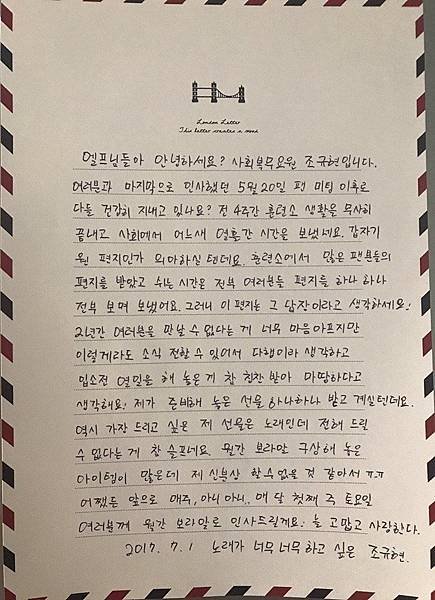 London Letter
This letter creates a mood
엘프님들아 안녕하세요? 사회복무요원 조규현입니다.
여러분과 마지막으로 인사했던 5월20일 팬 미팅 이후로
다들 건강히 지내고 있나요? 전 4주간 훈련소 생활을 무사히
끝내고 사회에서 어느새 열흘간 시간을 보냈네요. 갑자기
웬 편지인가 의아하실텐데요. 훈련소에서 많은 팬분들의
편지를 받았고 쉬는 시간은 전부 여러분들 편지를 하나 하나
전부 보며 보냈어요. 그러니 이 편지는 그 답장이라고 생각하세요!
2년간 여러분을 만날 수 없다는 게 너무 마음아프지만
이렇게라도 소식 전할 수 있어서 다행이라 생각하고
입소전 열일을 해 놓은 게 참 칭찬 받아 마땅하다고
생각해요! 제가 준비해 놓은 선물 하나하나 받고 계실텐데요.
역시 가장 드리고 싶은 제 선물은 노래인데 전해 드릴
수 없다는게 참 슬프네요. 월간 보라말 구상해 놓은
아이템이 많은데 제 신분상 할수없을 것 같아서 ㅠ.ㅠ
어쨌든 앞으로 매주, 아니 아니.. 매 달 첫째 주 토요일
여러분께 월간 보라말로 인사드릴게요! 늘 고맙고 사랑한다.
2017. 7. 1 노래가 너무너무하고 싶은 조규현.